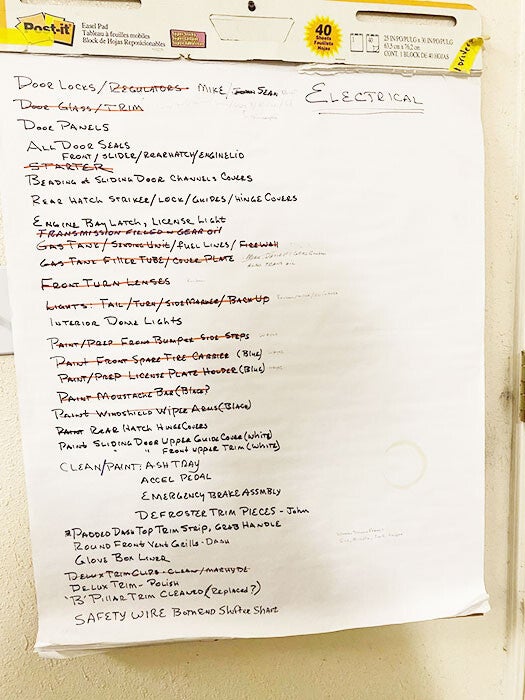 Post-it
Easel Pad
Tableau à feuilles mobiles
Block de Hojas Reposicionables
40
Sheets
Feuilles
Hojas
25 IN/PO/PULG x 30 IN/PO/PULG
63,5 cm x 76,2 cm
CONT. 1 BLOCK DE 40 HOJAS
ELECTRICAL
DOOR LOCKS/REGULATORS - MIKE/JOHN SEAN
DOOR GLASS/TRIM
DOOR PANELS
ALL DOOR SEALS
FRONT/SLIDER/REARHATCH/ENGINELID
STARTER
BEADING & SLIDING DOOR CHANNELS COVERS
REAR HATCH STRIKER/LOCK/GUIDES/HINGE COVERS
ENGINE BAY LATCH, LICENSE LIGHT
TRANSMISSION FILLED W GEAR OIL
GAS TANK/SENDING UNIT/FUEL LINES/FIREWALL
GAS TANK FILLER TUBE/COVER PLATE
FRONT TURN LENSES
LIGHTS: TAIL/TURN/SIDEMARKER/BACKUP
INTERIOR DOME LIGHTS
PAINT/PREP FRONT BUMPER SIDE STEPS
PAINT FRONT SPARE TIRE CARRIER (Blue)
PAINT/PREP LICENSE PLATE HOLDER (Blue)
PAINT MOUSTACHE BAR (Blue?)
PAINT WINDSHIELD WIPER ARMS (Black)
PAINT REAR HATCH HINGE COVERS
PAINT SLIDING DOOR UPPER GUIDE COVER (White)
" " FRONT UPPER TRIM (White)
CLEAN/PAINT: ASHTRAY
ACCEL PEDAL
EMERGENCY BRAKE ASSMBLY
DEFROSTER TRIM PIECES - John
*PADDED DASH TOP TRIM STRIP, GRAB HANDLE
ROUND FRONT VENT GRILLE - DASH
GLOVE BOX LINER
DELUX TRIM CLIPS - CLEAN/
DELUX TRIM - POLISH
'B' PILLAR TRIM CLEANED (Replaced?)
SAFETY WIRE BOTH END Shifter Shaft